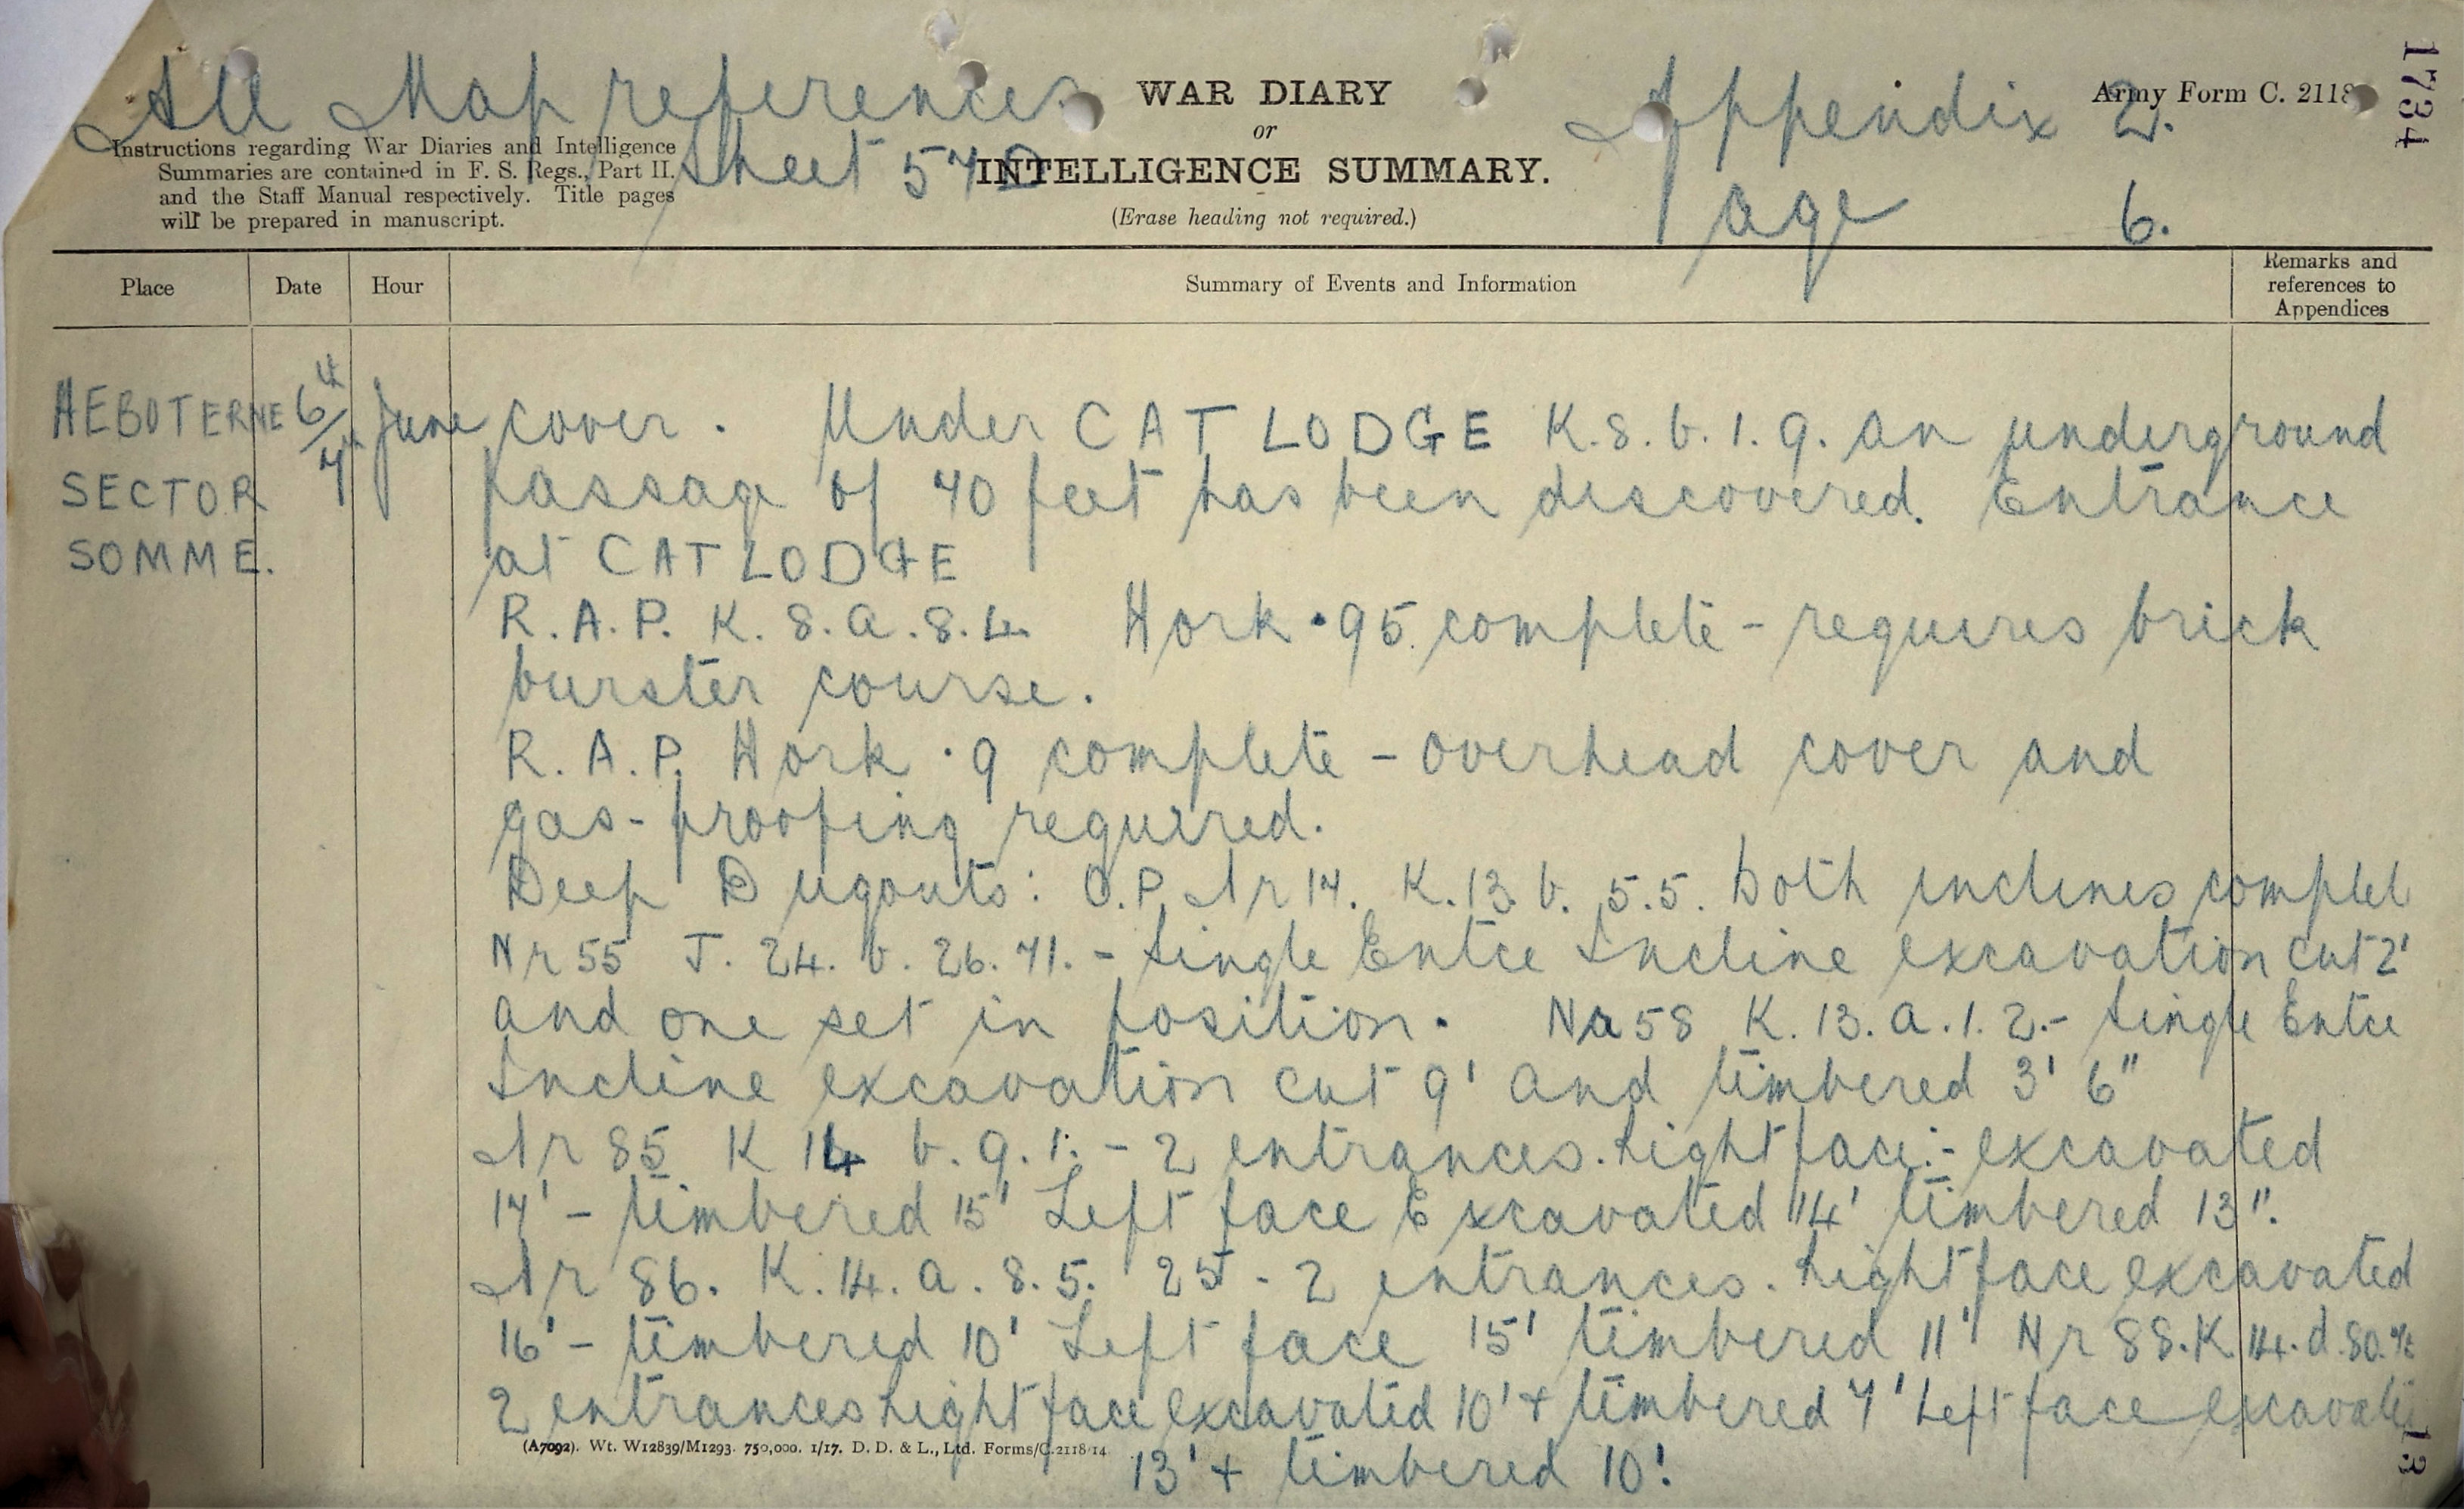 All Map references
Sheet 57D
WAR DIARY
or
INTELLIGENCE SUMMARY.
(Erase heading not required.)
Appendix 2.
Page 6.
Army Form C. 2118
1734
Instructions regarding War Diaries and Intelligence
Summaries are contained in F. S. Regs., Part II.
and the Staff Manual respectively. Title pages
will be prepared in manuscript.
Place Date Hour Summary of Events and Information Remarks and references to Appendices
HEBUTERNE 6th/7th June cover. Under CAT LODGE K.8.b.1.9. an underground
SECTOR passage of 70 feet has been discovered. Entrance
SOMME. at CAT LODGE
R.A.P. K.8.a.8.4. Work .95 complete - requires brick
burster course.
R.A.P. Work .9 complete - overhead cover and
gas-proofing required.
Deep Dugouts: O.P. Nr 17. K.13.b.5.5. both inclines complet
Nr 55 J.24.b.26.71. - Single Entce Incline excavation cut 2'
and one set in position. Nr 58 K.13.a.1.2. - Single Entce
Incline excavation cut 9' and timbered 3' 6"
Nr 85 K 14 b.9.1. - 2 entrances. Right face:- excavated
17' - timbered 15' Left face Excavated 14' timbered 13".
Nr 86. K.14.a.8.5. 25 - 2 entrances. Right face excavated
16' - timbered 10' Left face 15' timbered 11' Nr 88. K.14.d.80.
2 entrances Right face excavated 10' + timbered 7' Left face
13' + timbered 10'.
(A7092). Wt. W12839/M1293. 750,000. 1/17. D. D. & L., Ltd. Forms/C.2118/14
13